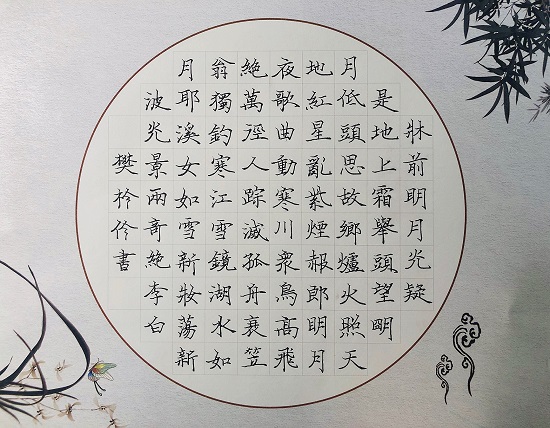 牀前明月光疑
是地上霜舉頭望眀
月低頭思故鄉爐火照天
地紅星亂紫煙赧郎明月
夜歌曲動寒川衆鳥高飛
絶萬徑人踪滅孤舟衰笠
翁獨釣寒江雪鏡湖水如
月耶溪女如雪新妝蕩新
波光景兩奇絶李白
樊柃伶書